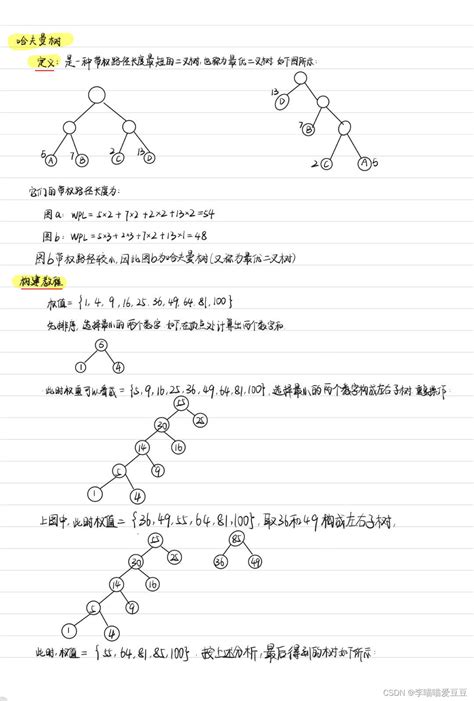 哈夫曼树
定义: 是一种带权路径长度最短的二叉树,也称为最优二叉树,如下图所示:
13 D
7 B
5 A 7 B 2 C 13 D
2 C A 5
它们的带权路径长度为:
图a: WPL=5×2+7×2+2×2+13×2=54
图b: WPL=5×3+2×3+7×2+13×1=48
图b带权路径较小,因此图b为哈夫曼树(又称为最优二叉树)
构建教程
权值={1,4,9,16,25,36,49,64,81,100}
先排序,选择最小的两个数字
计算出两个数字和
5
1 4
此时权重可以看成={5,9,16,25,36,49,64,81,100},选择最小的两个数字构成左右子树
55
30 25
14 16
5 9
1 4
上图中,此时权值={36,49,55,64,81,100},取36和49构成左右子树,
55 85
30 25 36 49
14 16
5 9
1 4
此时,权值={55,64,81,85,100},按上述分析,最后得到的树如下所示:
CSDN @李喵喵爱豆豆